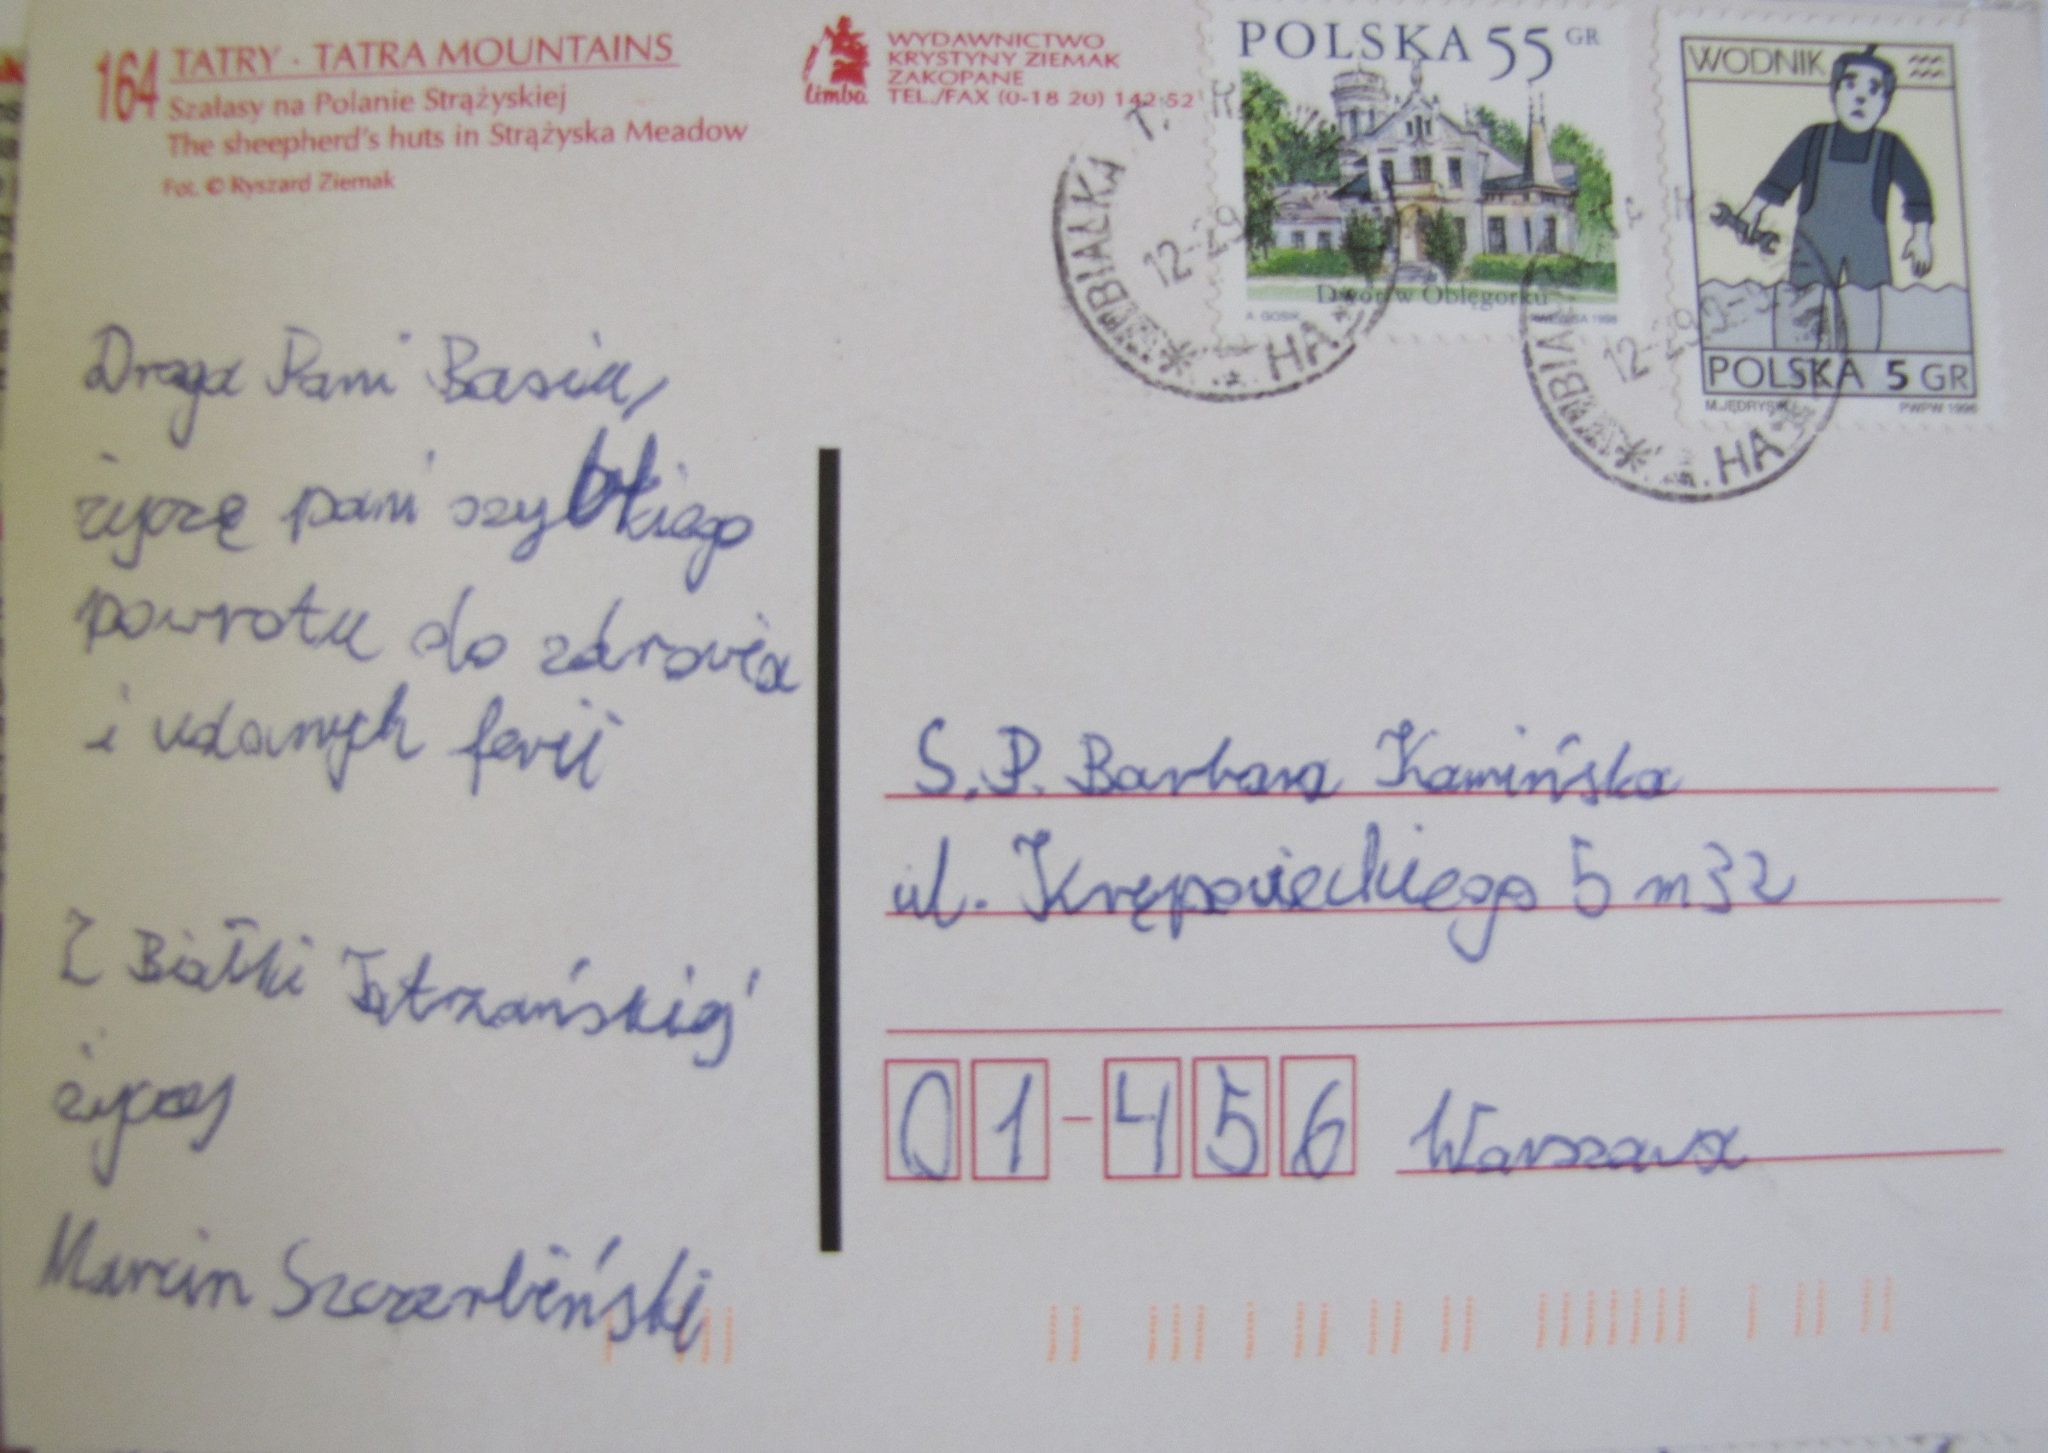 164 TATRY · TATRA MOUNTAINS
Szałasy na Polanie Strążyskiej
The sheepherd's huts in Strążyska Meadow
Fot. © Ryszard Ziemak
limba
WYDAWNICTWO
KRYSTYNY ZIEMAK
ZAKOPANE
TEL./FAX (0-18 20) 142 52
POLSKA 55 GR
Dwór w Oblęgorku
A. GOSIK
1998
WODNIK
POLSKA 5 GR
M.JĘDRYSIK
PWPW 1996
BIAŁKA T.
12-
HA
12-
HA
Droga Pani Basiu,
życzę pani szybkiego
powrotu do zdrowia
i udanych ferii
Z Białki Tatrzańskiej
życzy
Marcin Szczerbiński
S.P. Barbara Kamińska
ul. Krępowieckiego 5 m 32
01-456 Warszawa